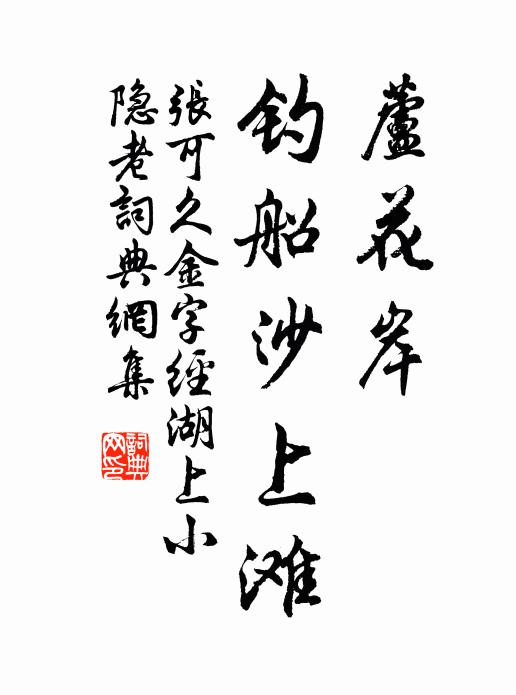 蘆花岸
钓船沙上滩
張可久金字經湖上小
隐老詞典網集
詞典網印